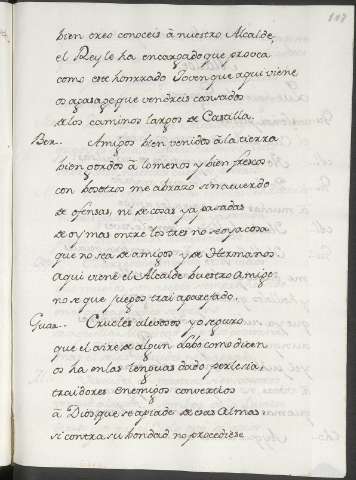 bien creo conoceis â nuestro Alcalde,
el Rey le ha encargado que provea
como este honrrado Joven que aqui viene
os agasage que vendreis cansados
de los caminos largos de Castilla.
Ber.. Amigos bien venidos â la tierra
bien gordos â lo menos y bien frescos,
con vosotros me abrazo sin acuerdo
de ofensas, ni de cosas ya pasadas
de oy mas entre los tres no se oya cosa
que no sea de amigos y de Hermanos
Aqui viene el Alcalde vuestro Amigo
no se que juegos trai aparejado.
Guar.. Crueles alevosos yo seguro
que el aire de algun dobo como dicen
os ha en las lenguas dado perlesia,
traidores enemigos convertios
â Dios que se apiade de esas Almas
si contra su bondad no procediese